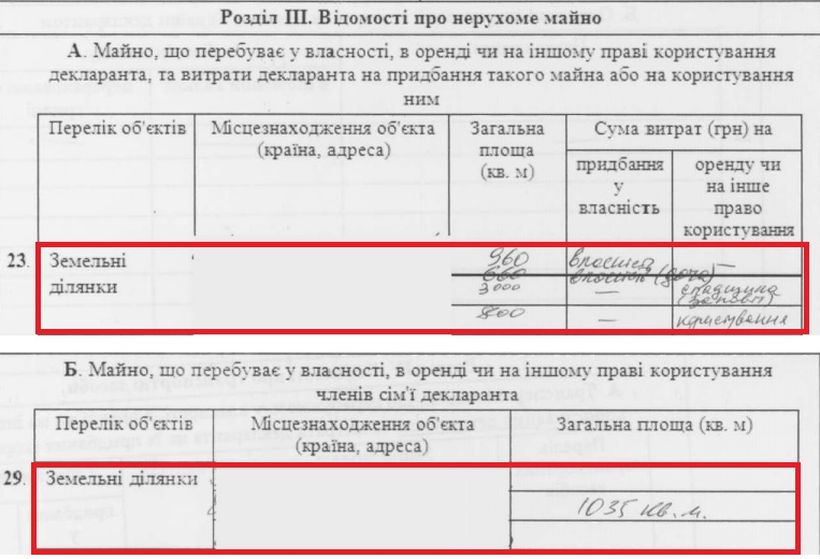 Розділ III. Відомості про нерухоме майно
А. Майно, що перебуває у власності, в оренді чи на іншому праві користування
декларанта, та витрати декларанта на придбання такого майна або на користування
ним
Перелік об'єктів
Місцезнаходження об'єкта
(країна, адреса)
Загальна
площа
(кв. м)
Сума витрат (грн) на
придбання
у
власність
оренду чи
на інше
право
користування
23.
Земельні
ділянки
960
власність
—
660
власність (дача)
3000
—
спадщина
800
—
користування
Б. Майно, що перебуває у власності, в оренді чи на іншому праві користування
членів сім'ї декларанта
Перелік об'єктів
Місцезнаходження об'єкта
(країна, адреса)
Загальна площа (кв. м)
29.
Земельні ділянки
1035 кв. м.